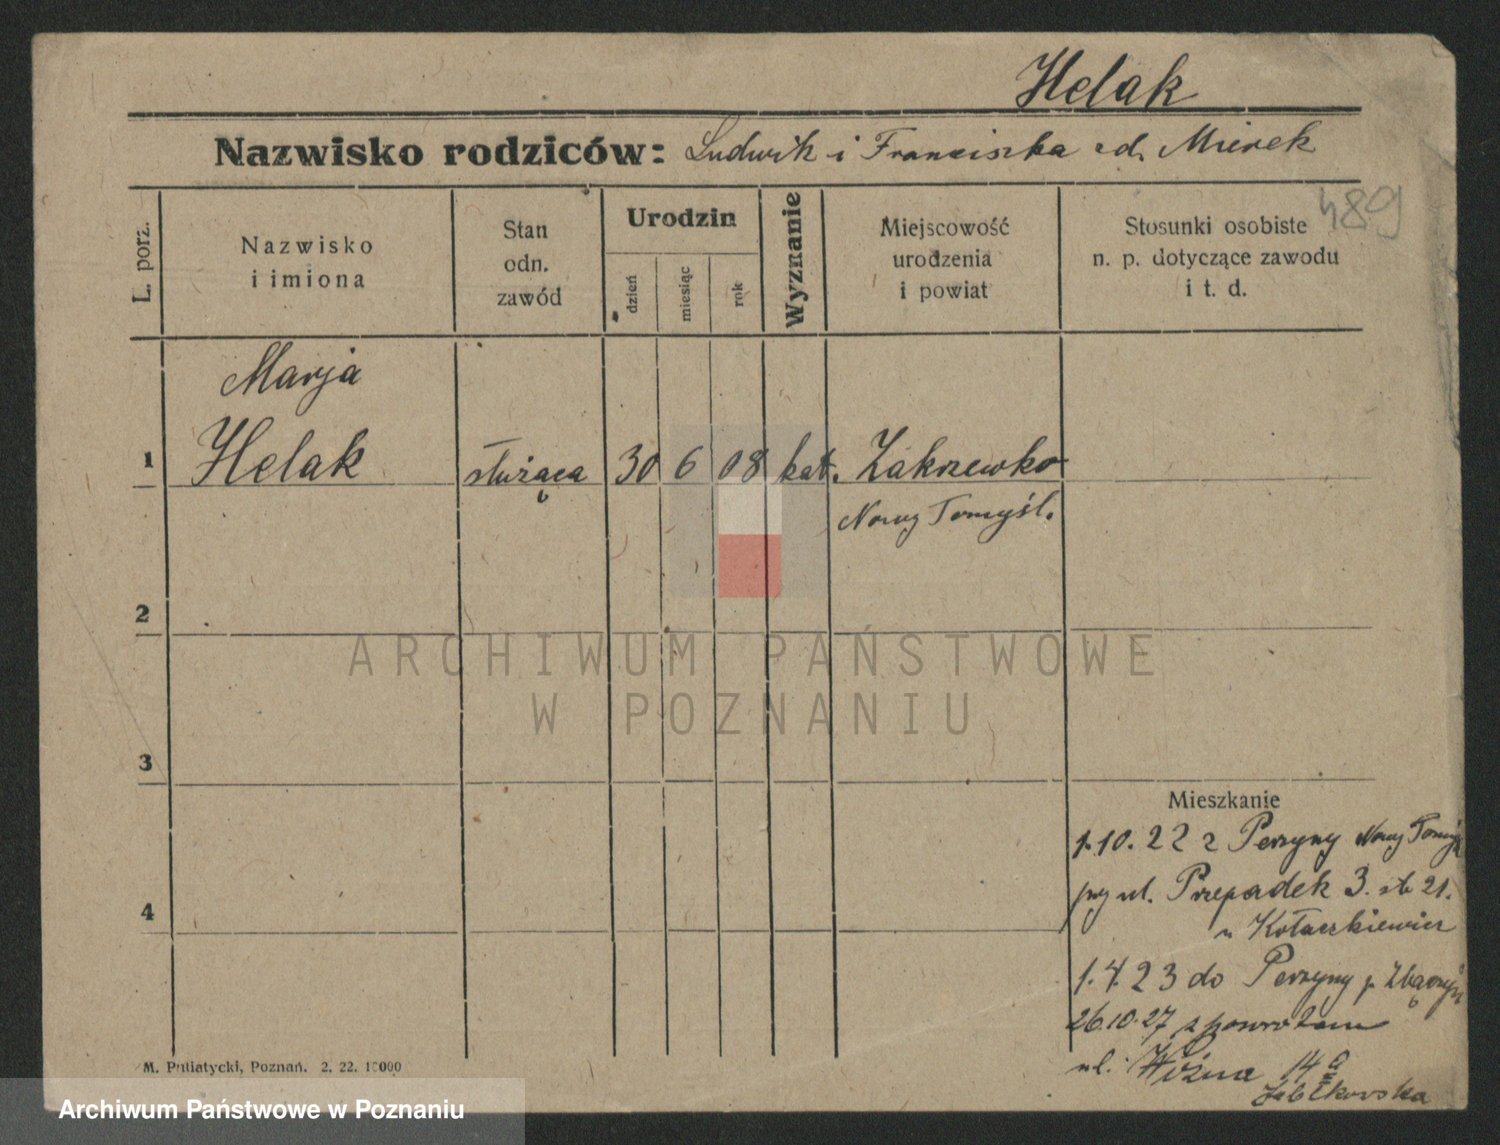 Helak
Nazwisko rodziców: Ludwik i Franciszka zd. Mierek
489
L. porz.
Nazwisko
i imiona
Stan
odn.
zawód
Urodzin
dzień
miesiąc
rok
Wyznanie
Miejscowość
urodzenia
i powiat
Stosunki osobiste
n. p. dotyczące zawodu
i t. d.
Marja
1 Helak służąca 30 6 08 kat. Zakrzewko
Nowy Tomyśl.
2
ARCHIWUM PAŃSTWOWE
W POZNANIU
3
Mieszkanie
1.10.22 z Perzyny Nowy Tomyśl
przy ul. Przepadek 3. st 21.
u Kołaczkiewicz
4
1.4.23 do Perzyny p. Zbąszyń
26.10.27 z powrotem
ul. Woźna 14a
Jabłkowska
M. Putiatycki, Poznań. 2. 22. 10000
Archiwum Państwowe w Poznaniu